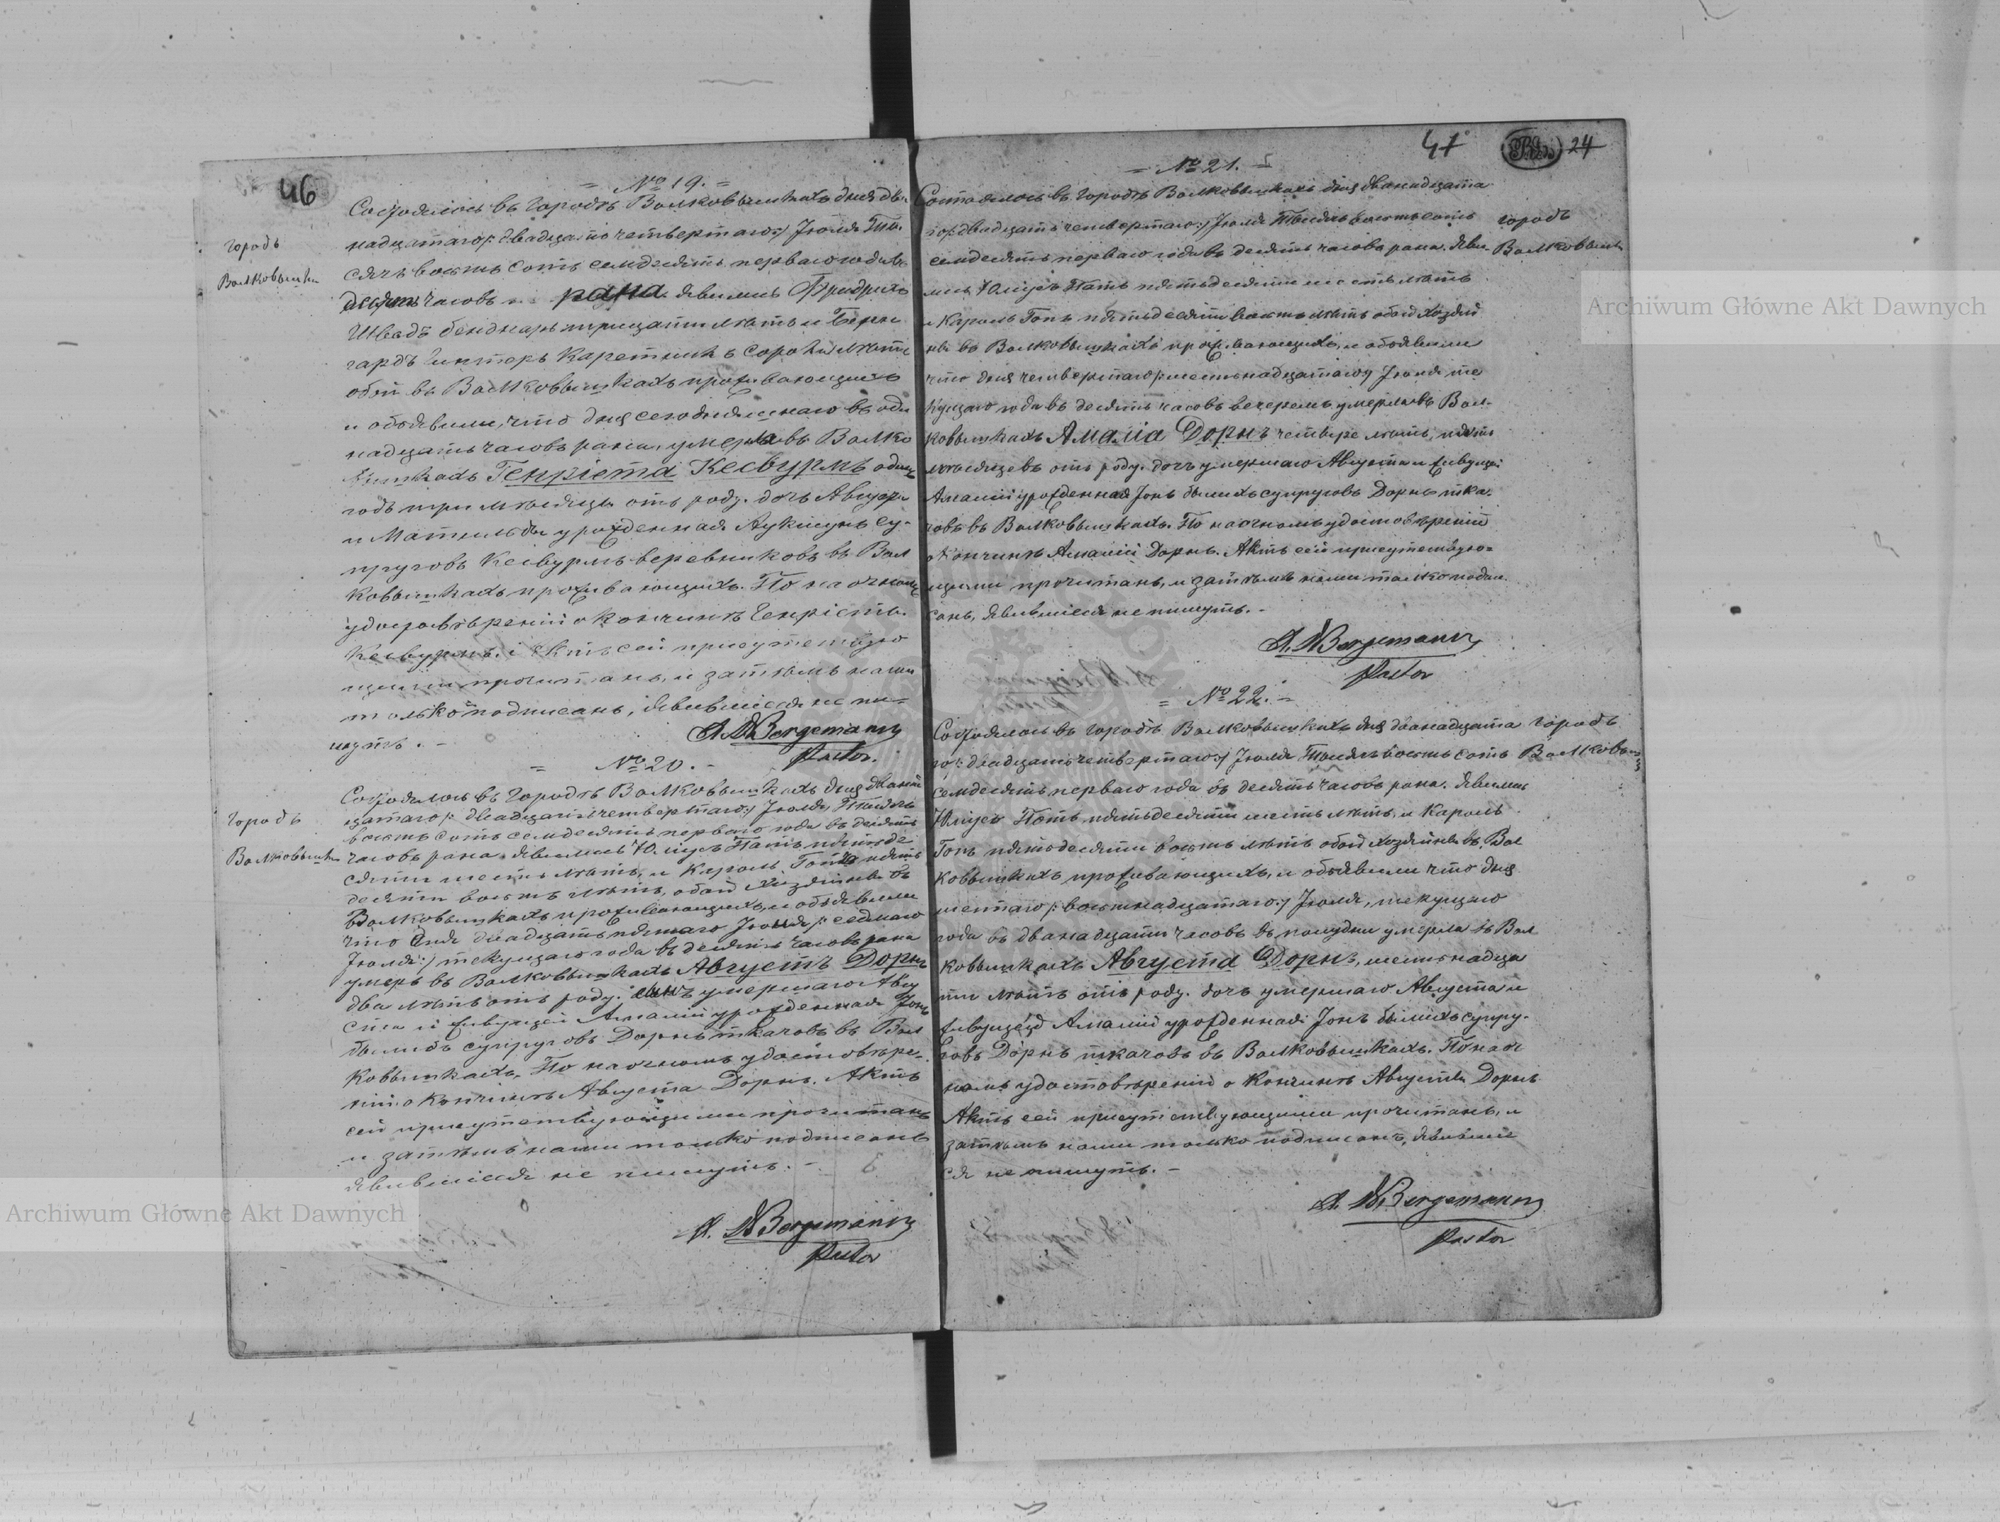 46
= № 19. =
Городъ
Волковышки
Состоялось въ городѣ Волковышкахъ дня две-
надцатаго /: двадцать четвертаго :/ Іюля Ты-
сячъ восемь сотъ семдесятъ перваго года въ
десять часовъ рана. Явились Фридрихъ
Швадъ беднаръ тридцати лѣтъ и Берн-
гардъ каретникъ сорокъ лѣтъ
обои въ Волковышкахъ проживающихъ
и объявили, что дня сегодняшнаго въ оди
надцать часовъ рана, умерла въ Волко
вышкахъ Генріета Кесвурмъ одинъ
годъ три мѣсяцы отъ роду. дочь Августа
и Матильды урожденная су-
пруговъ Кесвурмъ веревниковъ въ Вол
ковышкахъ проживающихъ. По наочномъ
удостовѣреніи о кончинѣ Генріеты
Кесвурмъ. Актъ сей присутствую
щими прочитанъ, и затѣмъ нами
только подписанъ, явившіеся не пи-
шутъ. -
A. W Bergemann
Pastor.
= № 20. -
Городъ
Волковышки
Состоялось въ городѣ Волковышкахъ дня двенад
цатаго /: двадцать четвертаго :/ Іюля Тысячъ
восемь сотъ семдесятъ перваго года въ десять
часовъ рана. Явились Юліусъ Патъ пятьде
сяти шесть лѣтъ, и Кароль Гопъ пять
десяти восемь лѣтъ, обаи хозяины въ
Волковышкахъ проживающихъ, и объявили
что дня двадцать пятаго Іюня /: седмаго
Іюля :/ текущаго года въ десять часовъ рана
умеръ въ Волковышкахъ Августъ Дорнъ
два лѣтъ отъ роду. сынъ умершаго Авгу
ста и живущей Амаліи урожденная Іонъ
былихъ супруговъ Дорнъ ткачовъ въ Вол
ковышкахъ. По наочномъ удостовѣре-
ніи о кончинѣ Августа Дорнъ. Актъ
сей присутствующими прочитанъ
и затѣмъ нами только подписанъ
явившіеся не пишутъ. -
A. W Bergemann
Pastor
47
24
= № 21. =
Состоялось въ городѣ Волковышкахъ дня дванадцата
го /: двадцать четвертаго :/ Іюля Тысячъ восемь сотъ
семдесятъ перваго года въ десять часовъ рана. Яви-
лись Юліусъ Патъ пятьдесяти шесть лѣтъ
и Кароль Гопъ пятьдесяти восемь лѣтъ обаи хозяи
ны въ Волковышкахъ проживающихъ, и объявили
что дня четвертаго /: шестьнадцатаго :/ Іюля те
кущаго года въ десять часовъ вечеремъ, умерла въ Вол-
ковышкахъ Амалія Дорнъ четыре лѣтъ, пять
мѣсяцевъ отъ роду. дочь умершаго Августа и живущей
Амаліи урожденная Іонъ былихъ супруговъ Дорнъ тка-
човъ въ Волковышкахъ. По наочномъ удостовѣреніи
о кончинѣ Амаліи Дорнъ. Актъ сей присутствую-
щими прочитанъ, и затѣмъ нами только подпи-
санъ, явившіеся не пишутъ. -
городъ
Волковышки
A. W Bergemann
Pastor
= № 22. =
Состоялось въ городѣ Волковышкахъ дня дванадцата
го /: двадцать четвертаго :/ Іюля Тысячъ восемь сотъ
семдесятъ перваго года въ десять часовъ рана. Явились
Юліусъ Патъ, пятьдесяти шесть лѣтъ, и Кароль
Гопъ пятьдесяти восемь лѣтъ обаи хозяины въ Вол
ковышкахъ проживающихъ, и объявили что дня
шестаго /: восемнадцатаго :/ Іюля, текущаго
года въ дванадцати часовъ въ полудни умерла въ Вол
ковышкахъ Августа Дорнъ, шестьнадца
ти лѣтъ отъ роду. дочь умершаго Августа и
живущей Амаліи урожденная Іонъ былихъ супру-
говъ Дорнъ ткачовъ въ Волковышкахъ. По наоч
номъ удостовѣреніи о кончинѣ Августы Дорнъ
Актъ сей присутствующими прочитанъ, и
затѣмъ нами только подписанъ, явившіе
ся не пишутъ. -
городъ
Волковышки
A. W Bergemann
Pastor
Archiwum Główne Akt Dawnych
Archiwum Główne Akt Dawnych